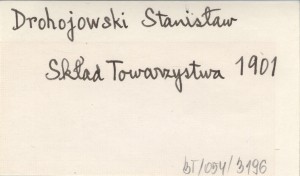 Drohojowski Stanisław
Skład Towarzystwa 1901
BT/094/3196